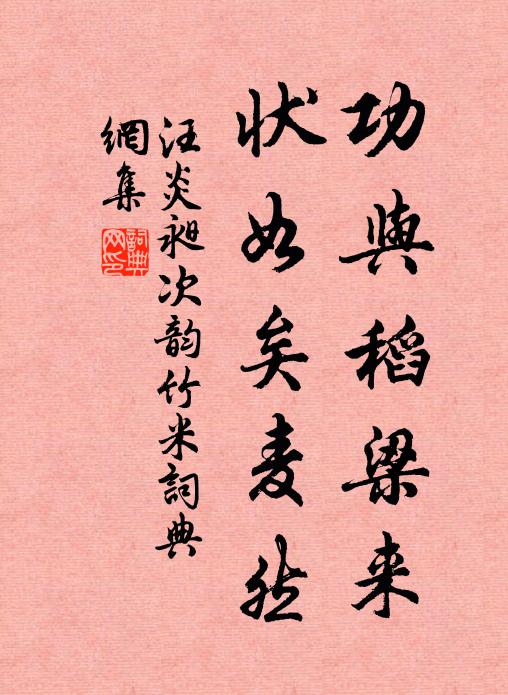 功與稻粱来
状如矣麦然
汪炎昶次韵竹米詞典
網集
詞典網印